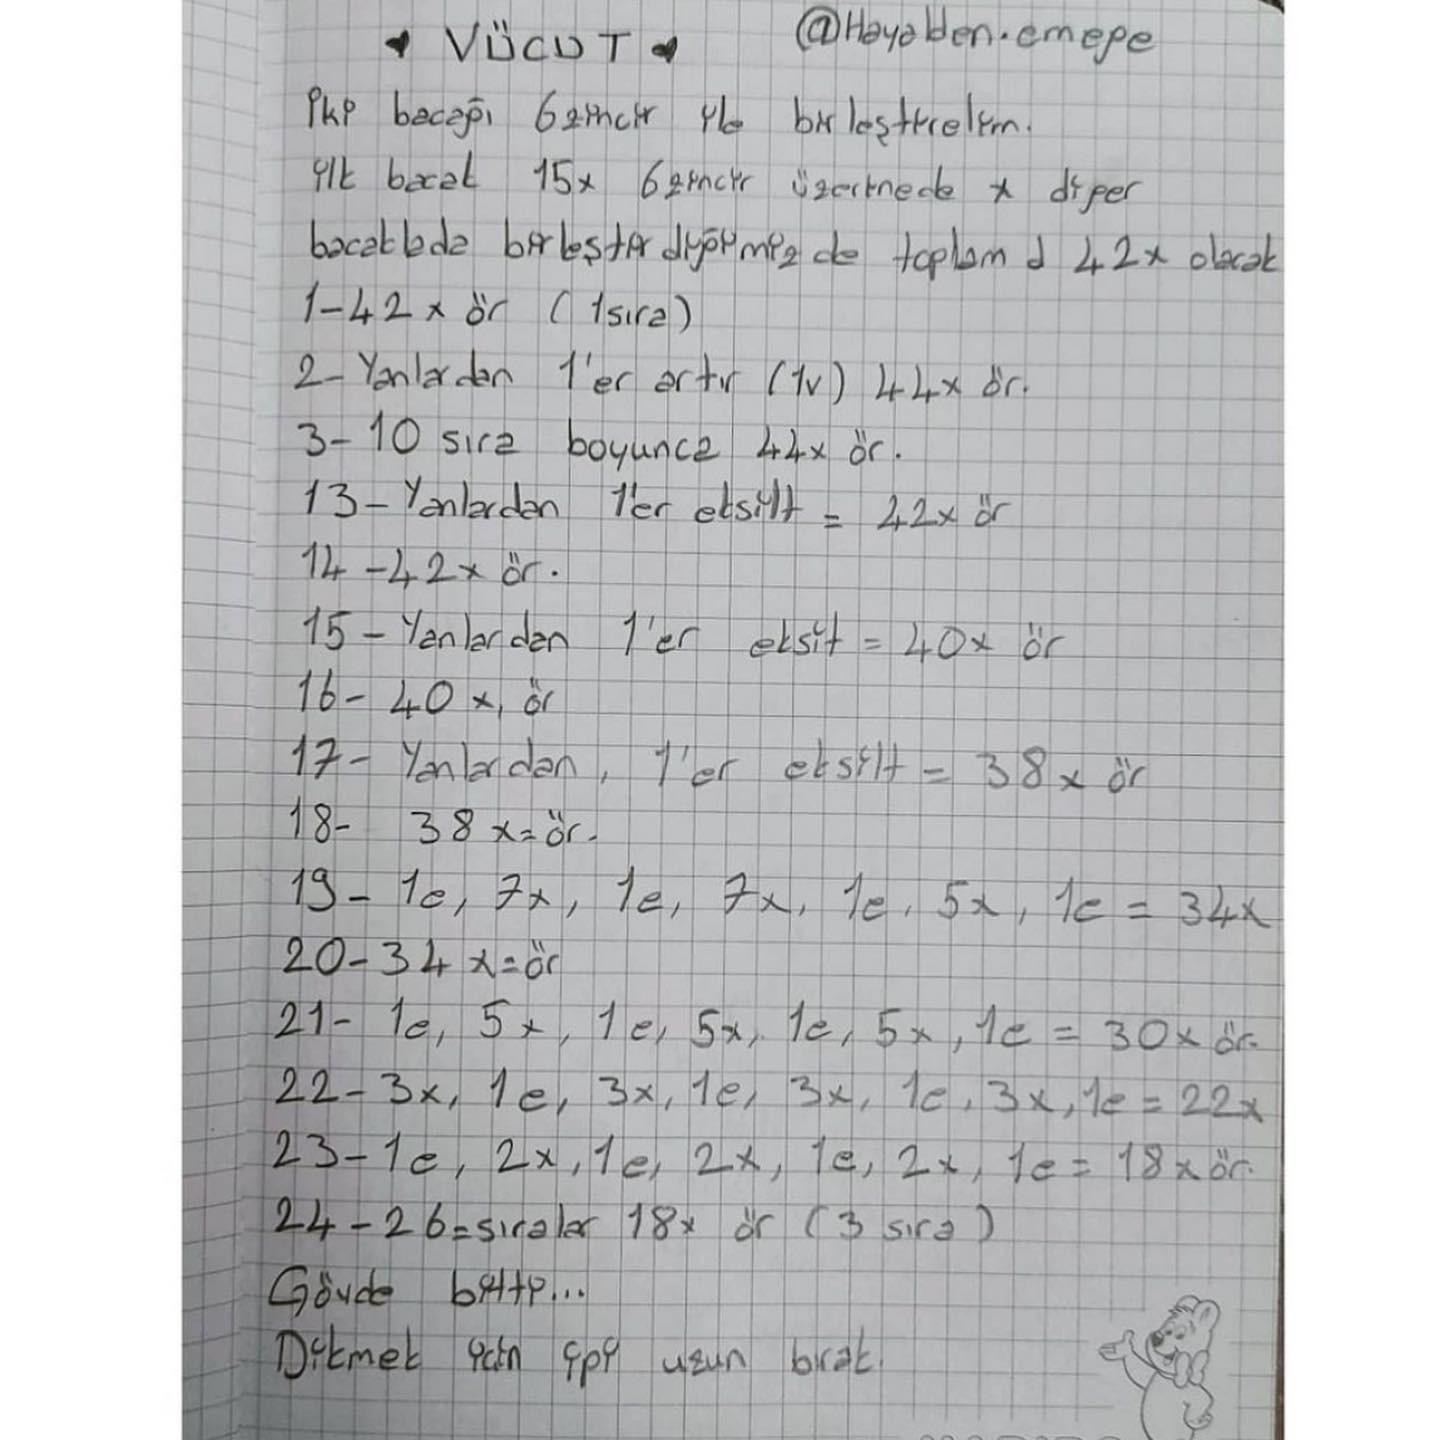 VÜCUT @Hayalden.emege
İki bacağı 6 zincir ile birleştirelim.
ilk bacak 15x 6 zincir üzerinede x diğer
bacaklada birleştirdiğimizde toplam d 42x olacak
1-42x ör (1sıra)
2- Yanlardan 1'er artır (1v) 44x ör.
3-10 sıra boyunca 44x ör.
13- Yanlardan 1'er eksilt = 42x ör
14-42x ör.
15- Yanlardan 1'er eksit = 40x ör
16- 40x, ör
17- Yanlardan, 1'er eksilt = 38x ör
18- 38x=ör.
19- 1e, 7x, 1e, 7x, 1e, 5x, 1e = 34x
20-34x=ör
21- 1e, 5x, 1e, 5x, 1e, 5x, 1e = 30x ör.
22-3x, 1e, 3x, 1e, 3x, 1e, 3x, 1e = 22x
23-1e, 2x, 1e, 2x, 1e, 2x, 1e = 18x ör.
24-26=sıralar 18x ör (3 sıra)
Gövde bitti...
Dikmek için ipi uzun bırak.